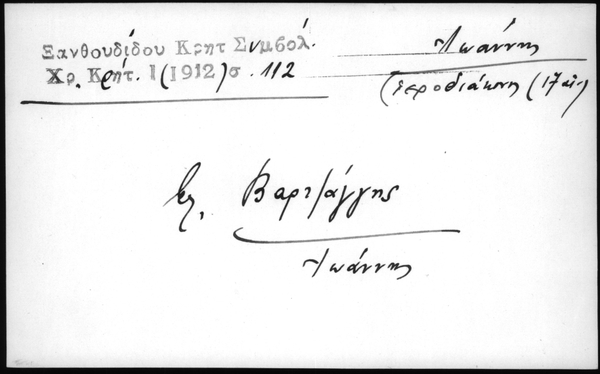 Ξανθουδίδου Κρητ Συμβολ.
Χρ. Κρήτ. 1(1912)σ. 112
Ἰωάννης
(ἱεροδιάκονος (17 αἰ.)
βλ. Βαριτζάγγης
Ἰωάννης